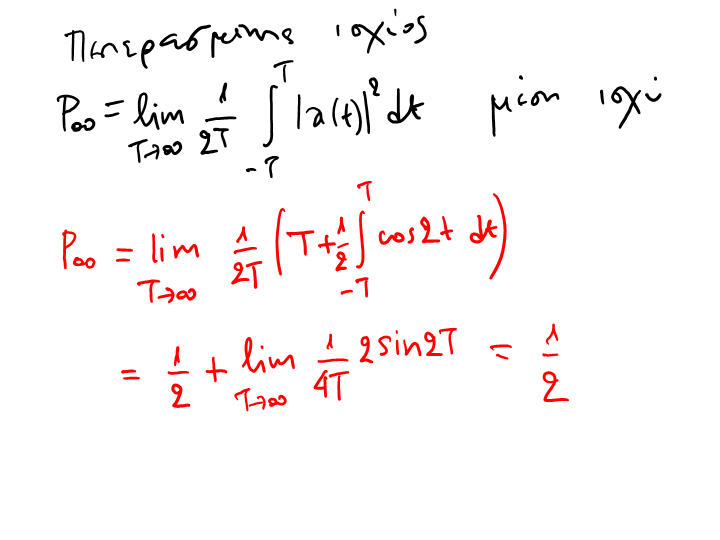 Πεπερασμένης ισχύος
P∞ = lim T→∞ 1/2T ∫_{-T}^{T} |x(t)|² dt μέση ισχύ
P∞ = lim T→∞ 1/2T (T + 1/2 ∫_{-T}^{T} cos2t dt)
= 1/2 + lim T→∞ 1/4T 2sin2T = 1/2